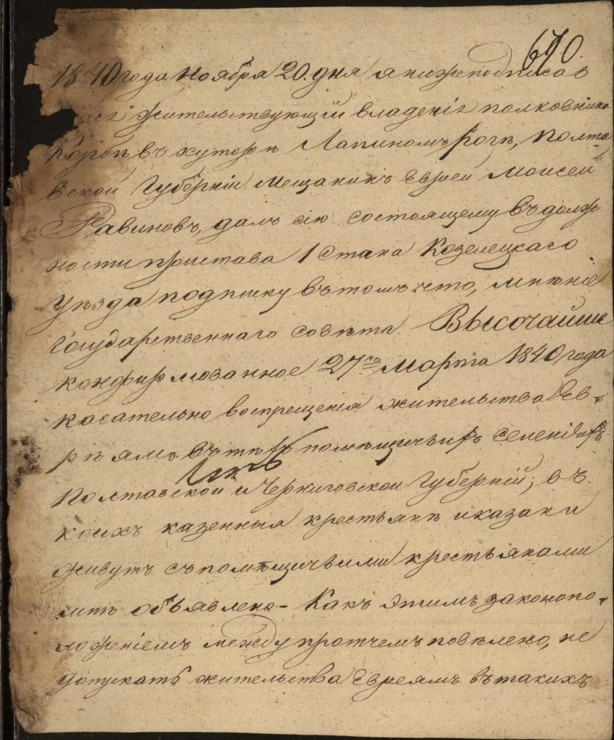 670.
1840 года Ноября 20. дня я нижеподписав
жительствующій владеніѣ полковника
въ хуторѣ Лапиномъ рогѣ, Полта
вской Губерніи Мещанинъ еврей Моисей
Равиновъ, далъ сію состоящему въ долж
ности пристава 1 Стана Козелецкаго
уѣзда подписку въ томъ что, мнѣніе
Государственнаго совѣта Высочайше
конфирмованное 27го Марта 1840 года
касательно воспрещенія жительства Ев-
рѣямъ въ тѣхъ помѣщичьихъ селеніяхъ
Полтавской и Черниговской Губерній; въ
коихъ казенныя крестьяне и казаки
живутъ съ помѣщичьими крестьянами
мнѣ объявлено - Какъ этимъ законопо-
ложеніемъ между протчемъ повѣлено, не
допускать жительства Евреямъ въ такихъ